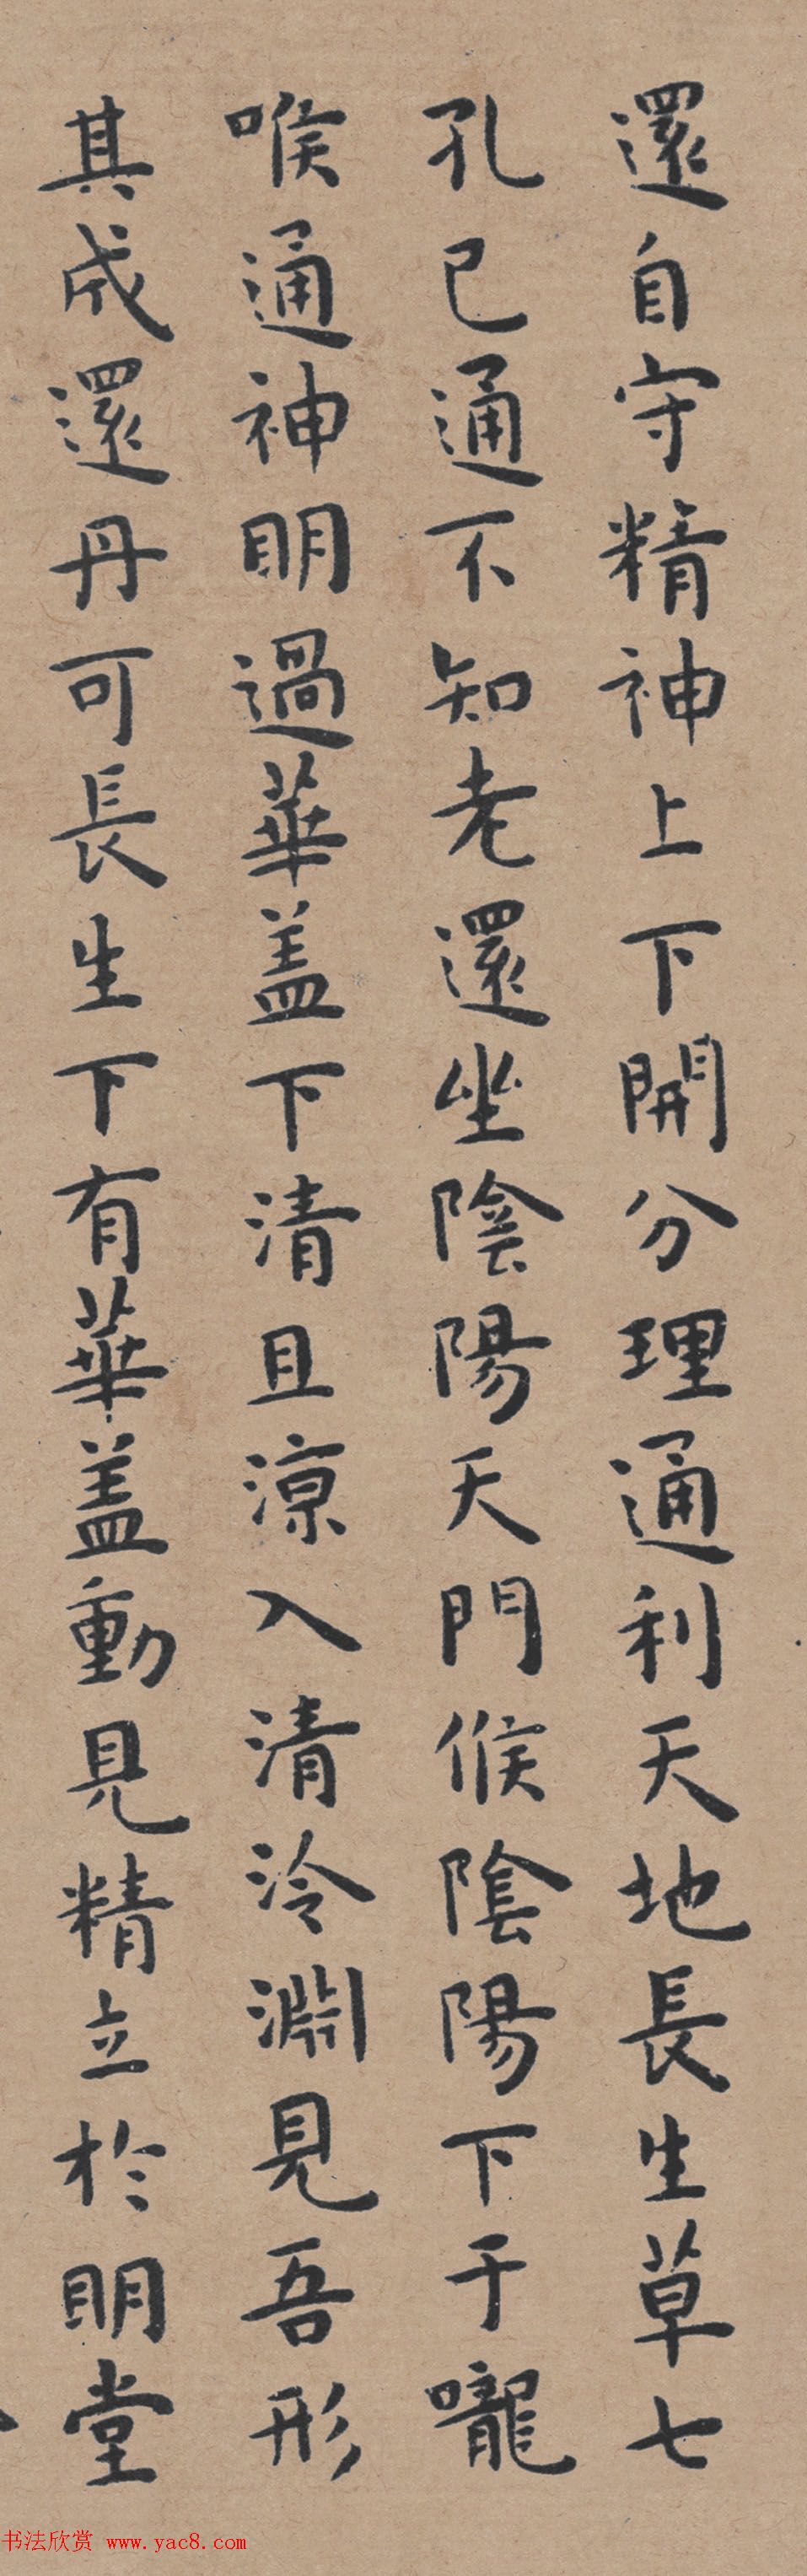 還自守精神上下開分理通利天地長生草七
孔已通不知老還坐陰陽天門候陰陽下于嚨
喉通神明過華盖下清且涼入清泠淵見吾形
其成還丹可長生下有華盖動見精立於明堂
书法欣赏 www.yac8.com